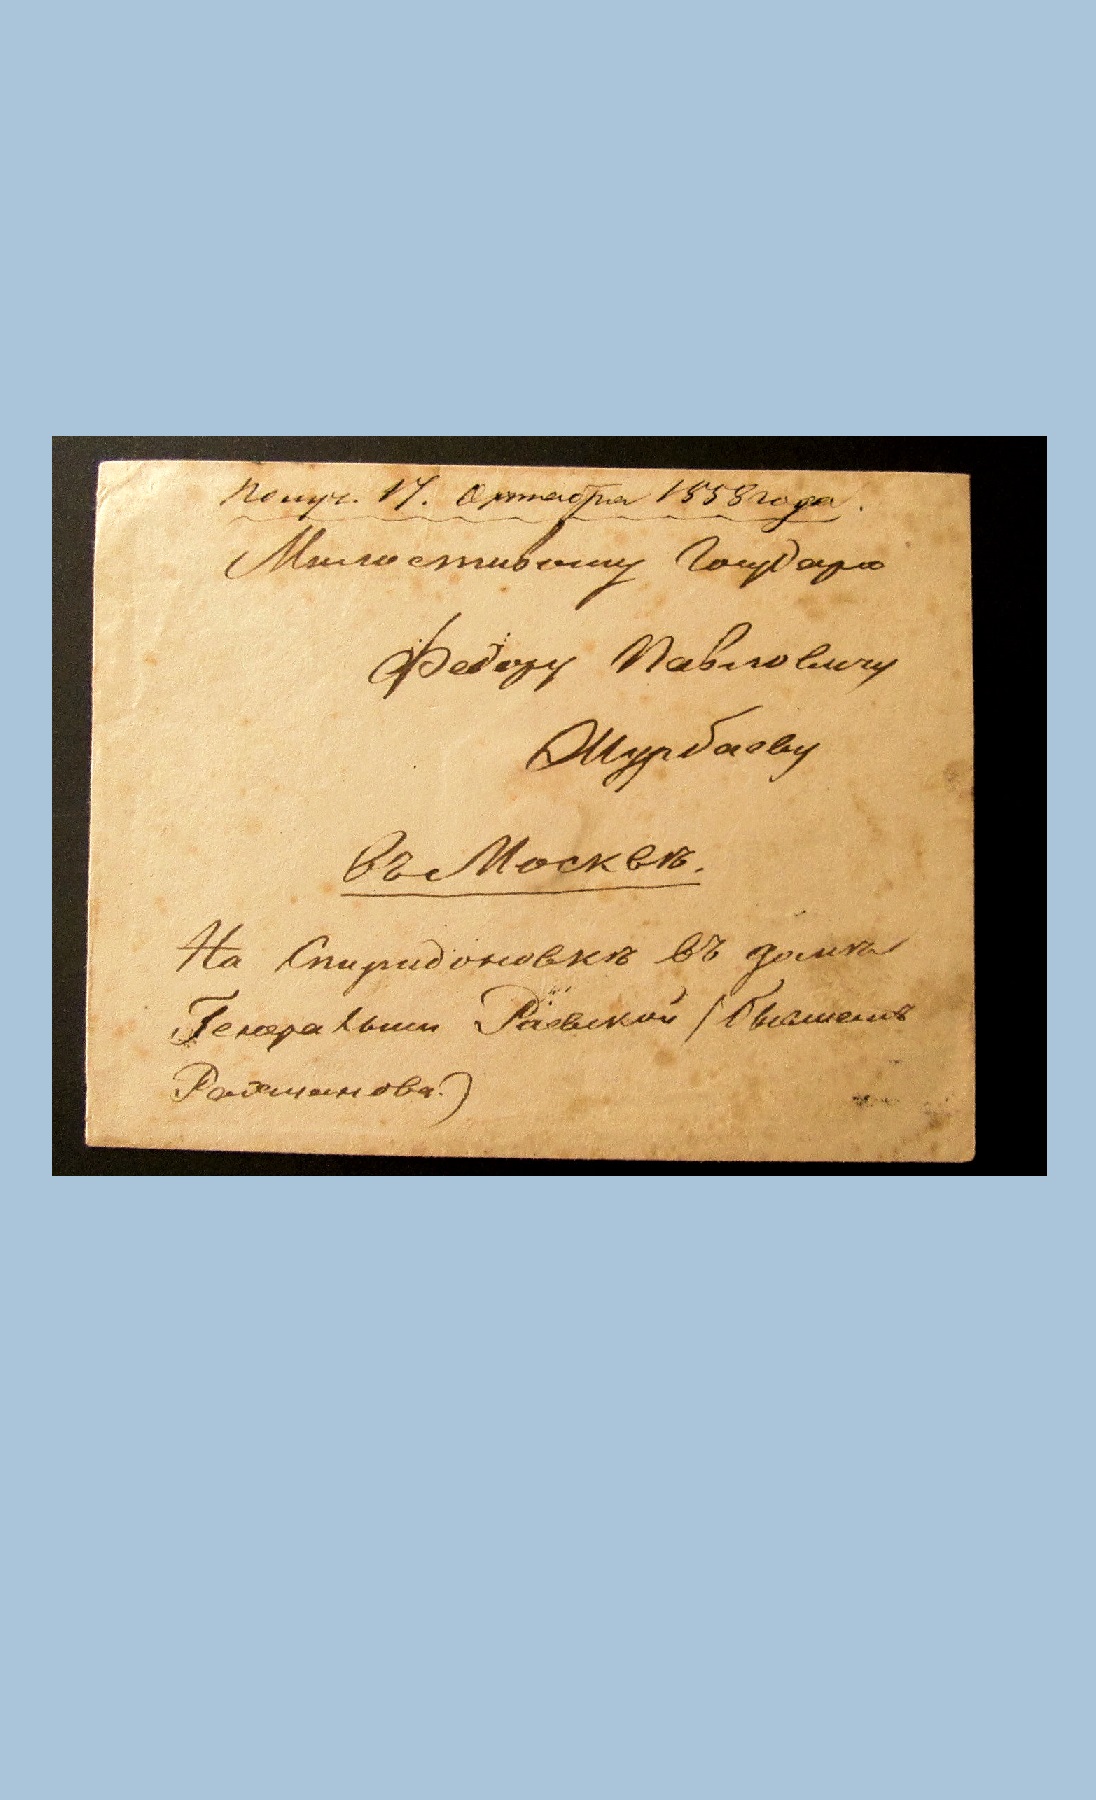 Получ. 17. Октября 1858 года.
Милостивому Государю
Федору Павловичу
Шурбаеву
въ Москвѣ.
На Спиридоновкѣ въ домѣ
Генеральши Раевской (бывшемъ
Рахманова.)